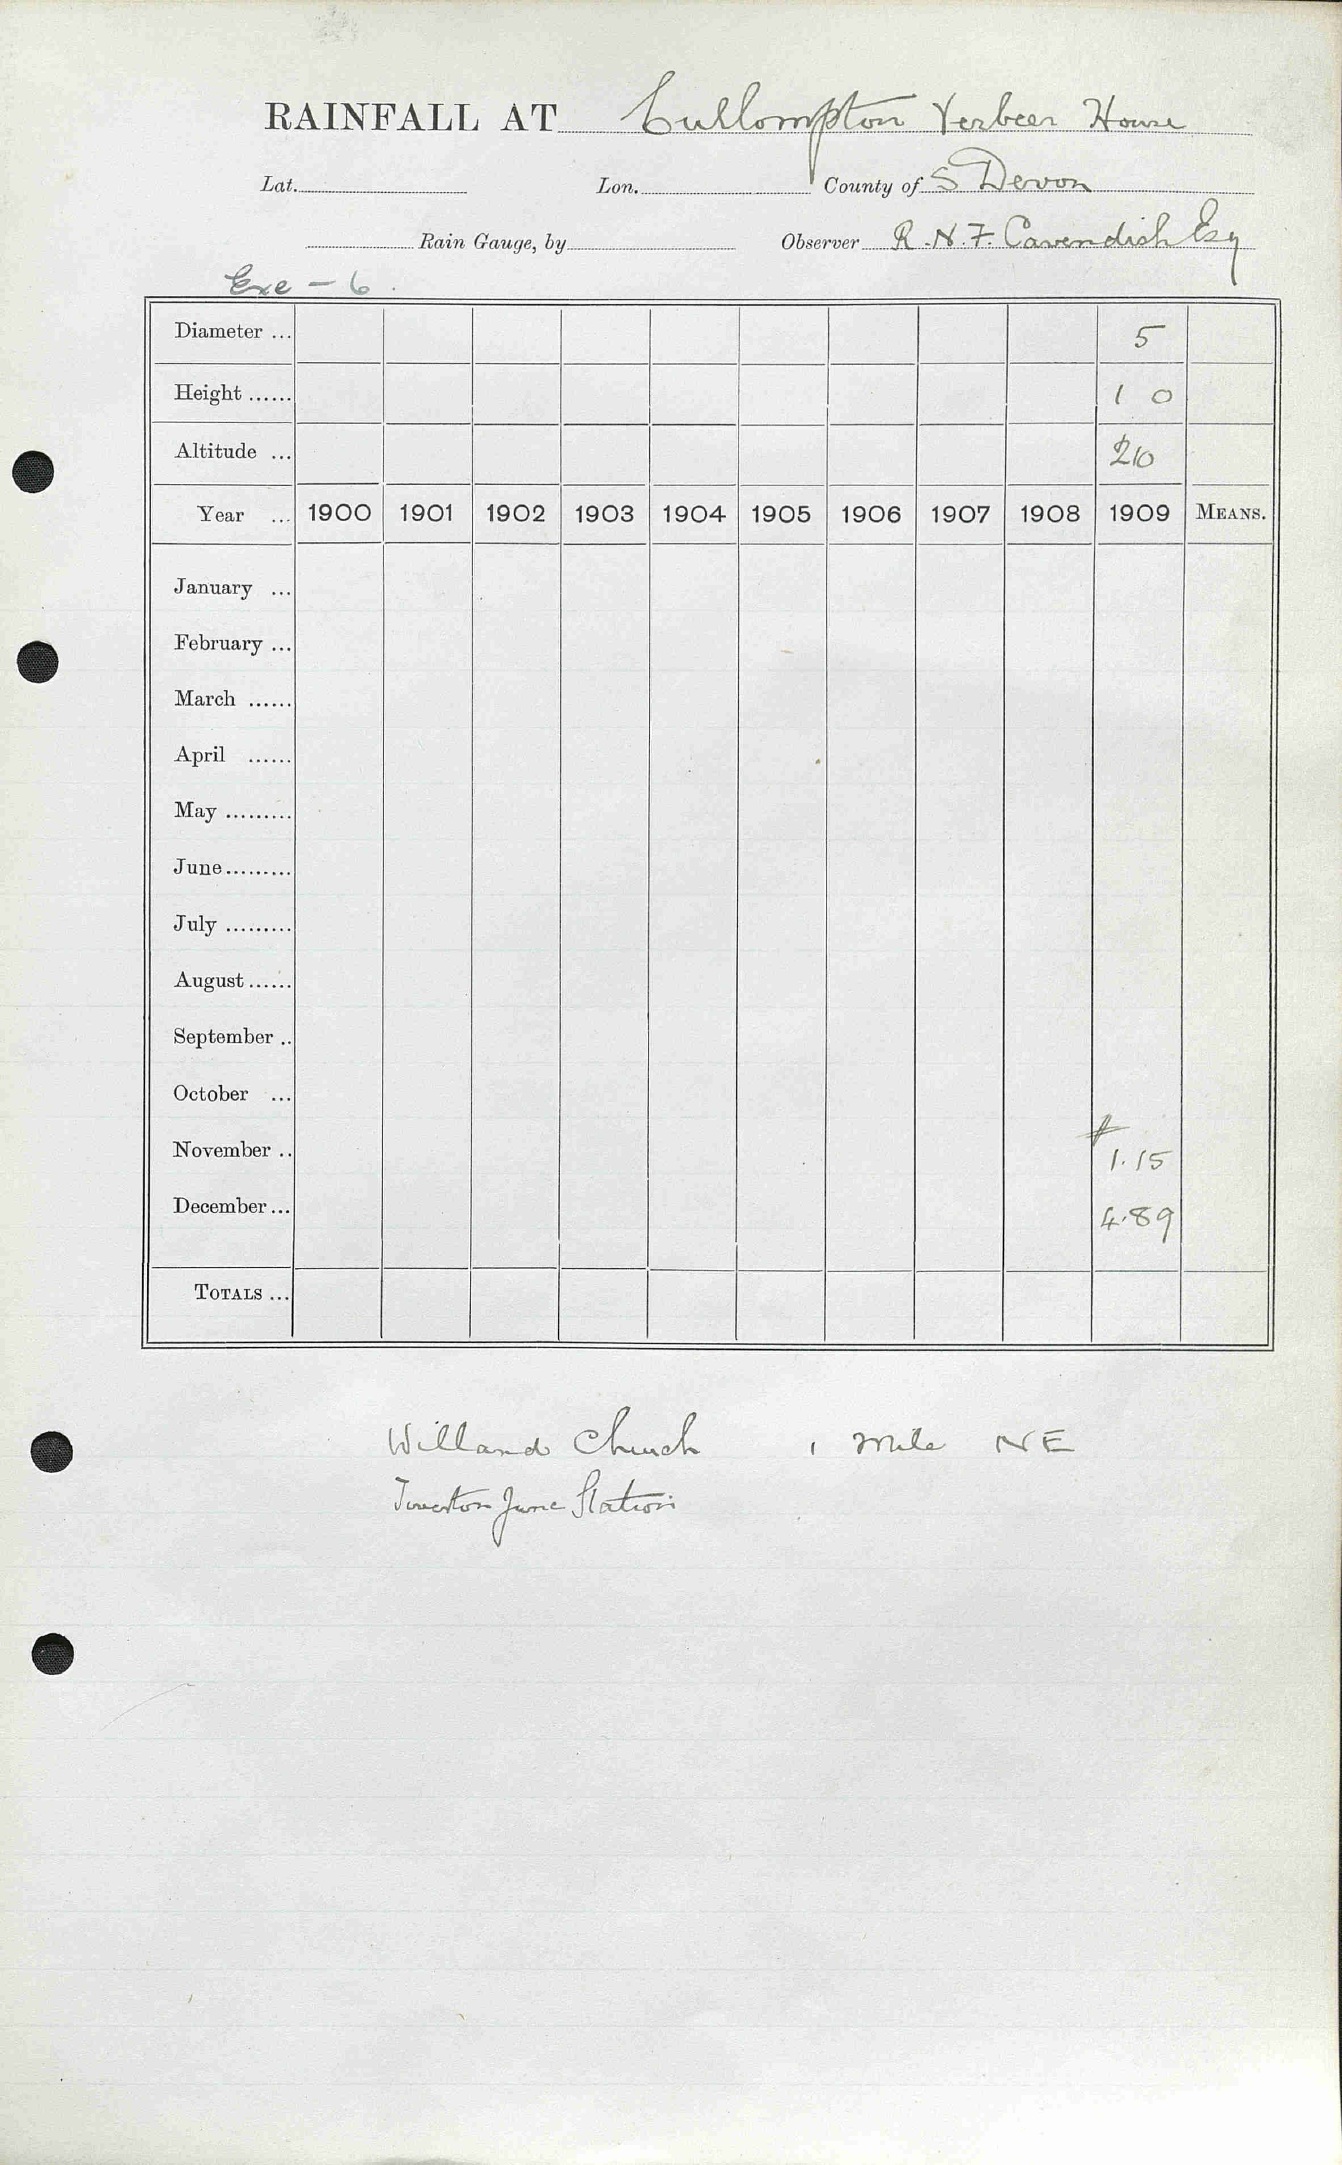 RAINFALL AT Cullompton Verbeer House
Lat. Lon. County of S Devon
Rain Gauge, by Observer R.N.F. Cavendish Esq
Exe - 6.
Diameter ... 5
Height ...... 1 0
Altitude ... 210
Year ... 1900 1901 1902 1903 1904 1905 1906 1907 1908 1909 MEANS.
January ...
February ...
March ......
April ......
May .........
June.........
July .........
August......
September ..
October ...
November .. # 1.15
December... 4.89
TOTALS ...
Willand Church 1 Mile NE
Tiverton Junc Station